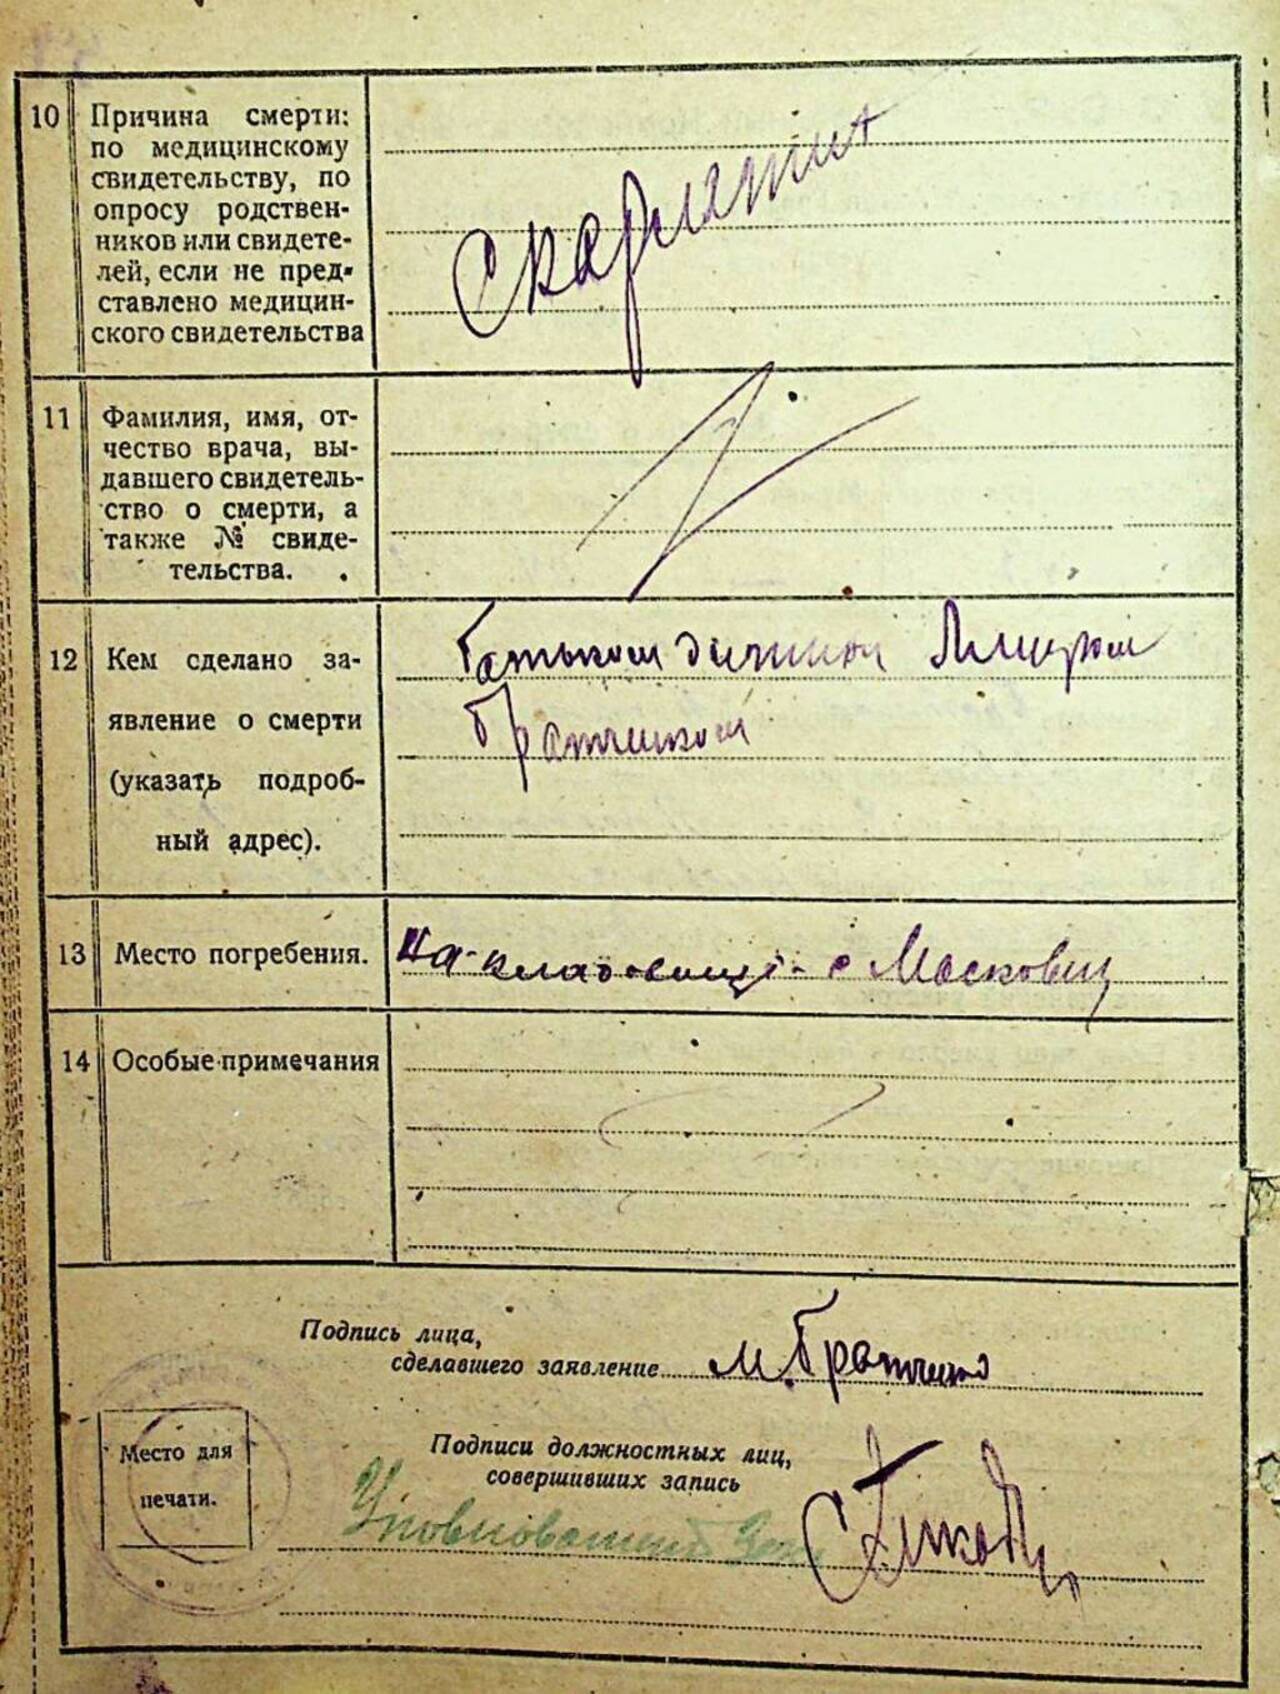 10 Причина смерти:
по медицинскому
свидетельству, по
опросу родствен-
ников или свидете-
лей, если не пред-
ставлено медицин-
ского свидетельства
Скарлатина
11 Фамилия, имя, от-
чество врача, вы-
давшего свидетель-
ство о смерти, а
также № свиде-
тельства.
12 Кем сделано за-
явление о смерти
(указать подроб-
ный адрес).
Батьком дитини
Братчиком
13 Место погребения.
На кладовищі с Московці
14 Особые примечания
Подпись лица,
сделавшего заявление М. Братчик
Место для
печати.
Подписи должностных лиц,
совершивших запись
Уповноважений